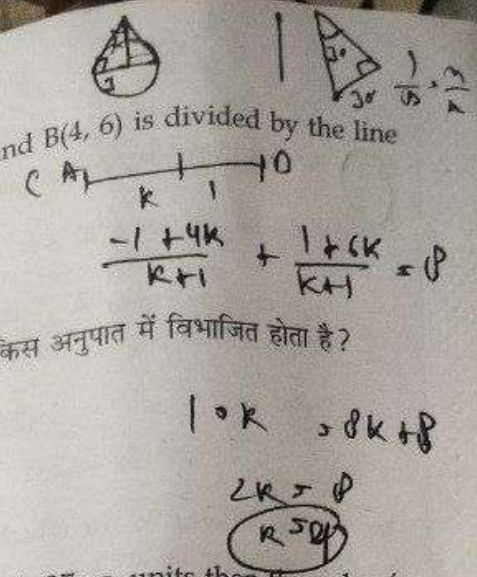 30
nd B(4, 6) is divided by the line
A
K 1
-1 + 4K / K+1 + 1 + 6K / K+1 = 8
किस अनुपात में विभाजित होता है?
10K = 8K + 8
2K = 8
K = 4
units then